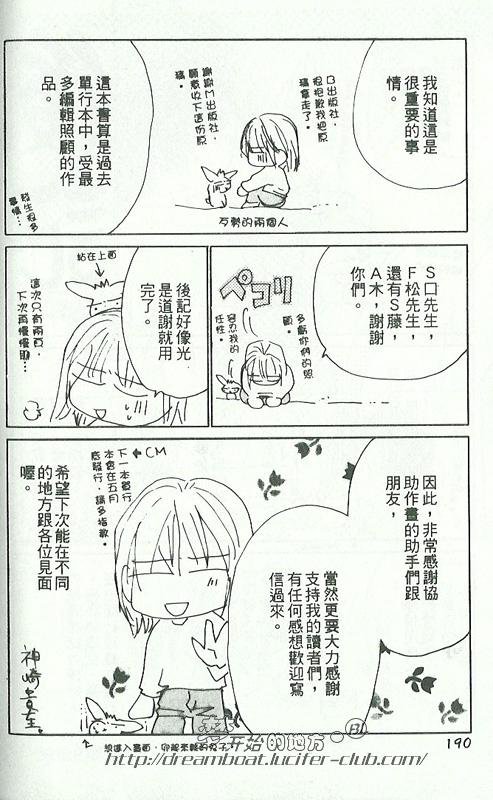 我知道這是
很重要的事
情。
B出版社，
很抱歉我把原
稿拿走了。
謝謝M出版社，
願意收下這份原
稿。
互勢的兩個人
這本書算是過去
單行本中，受最
多編輯照顧的作
品。
發生很多
事情…
S口先生，
F松先生，
還有S藤，
A木，謝謝
你們。
ペコリ
多虧你們的照
顧。
容忍我的
任性。
後記好像光
是道謝就用
完了。
粘在上面
這次只有兩頁，
下次再慢慢聊…
因此，非常感謝協
助作畫的助手們跟
朋友，
當然更要大力感謝
支持我的讀者們，
有任何感想歡迎寫
信過來。
←CM
下一本單行
本會在五月
底發行，請多指教。
希望下次能在不同
的地方跟各位見面
喔。
开始的地方。BL
http://dreamboat.lucifer-club.com/
190